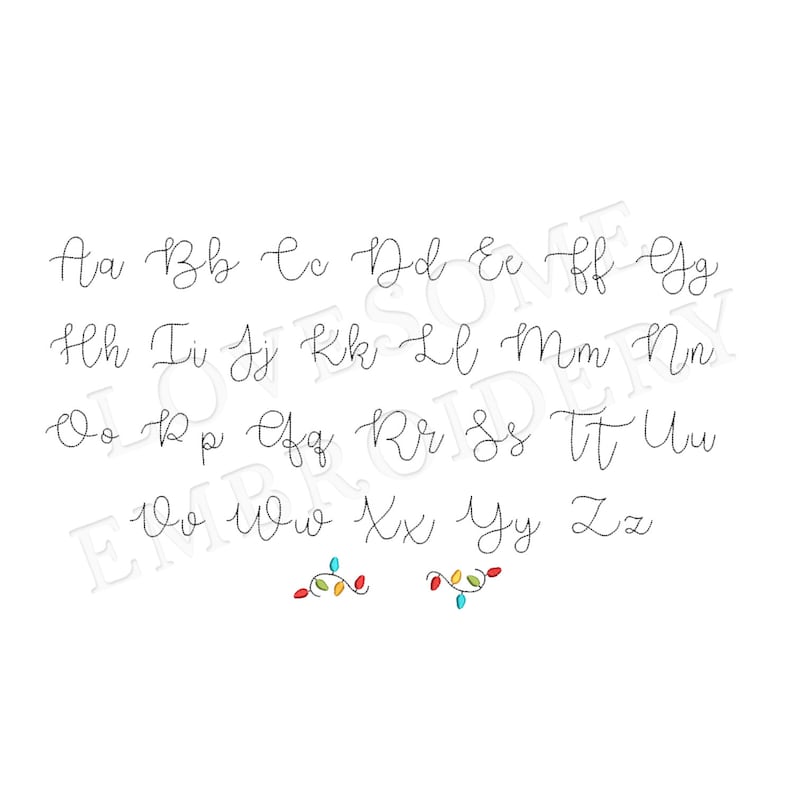 Aa Bb Cc Dd Ee Ff Gg
Hh Ii Jj Kk Ll Mm Nn
Oo Pp Qq Rr Ss Tt Uu
Vv Ww Xx Yy Zz
LOVESOME
EMBROIDERY